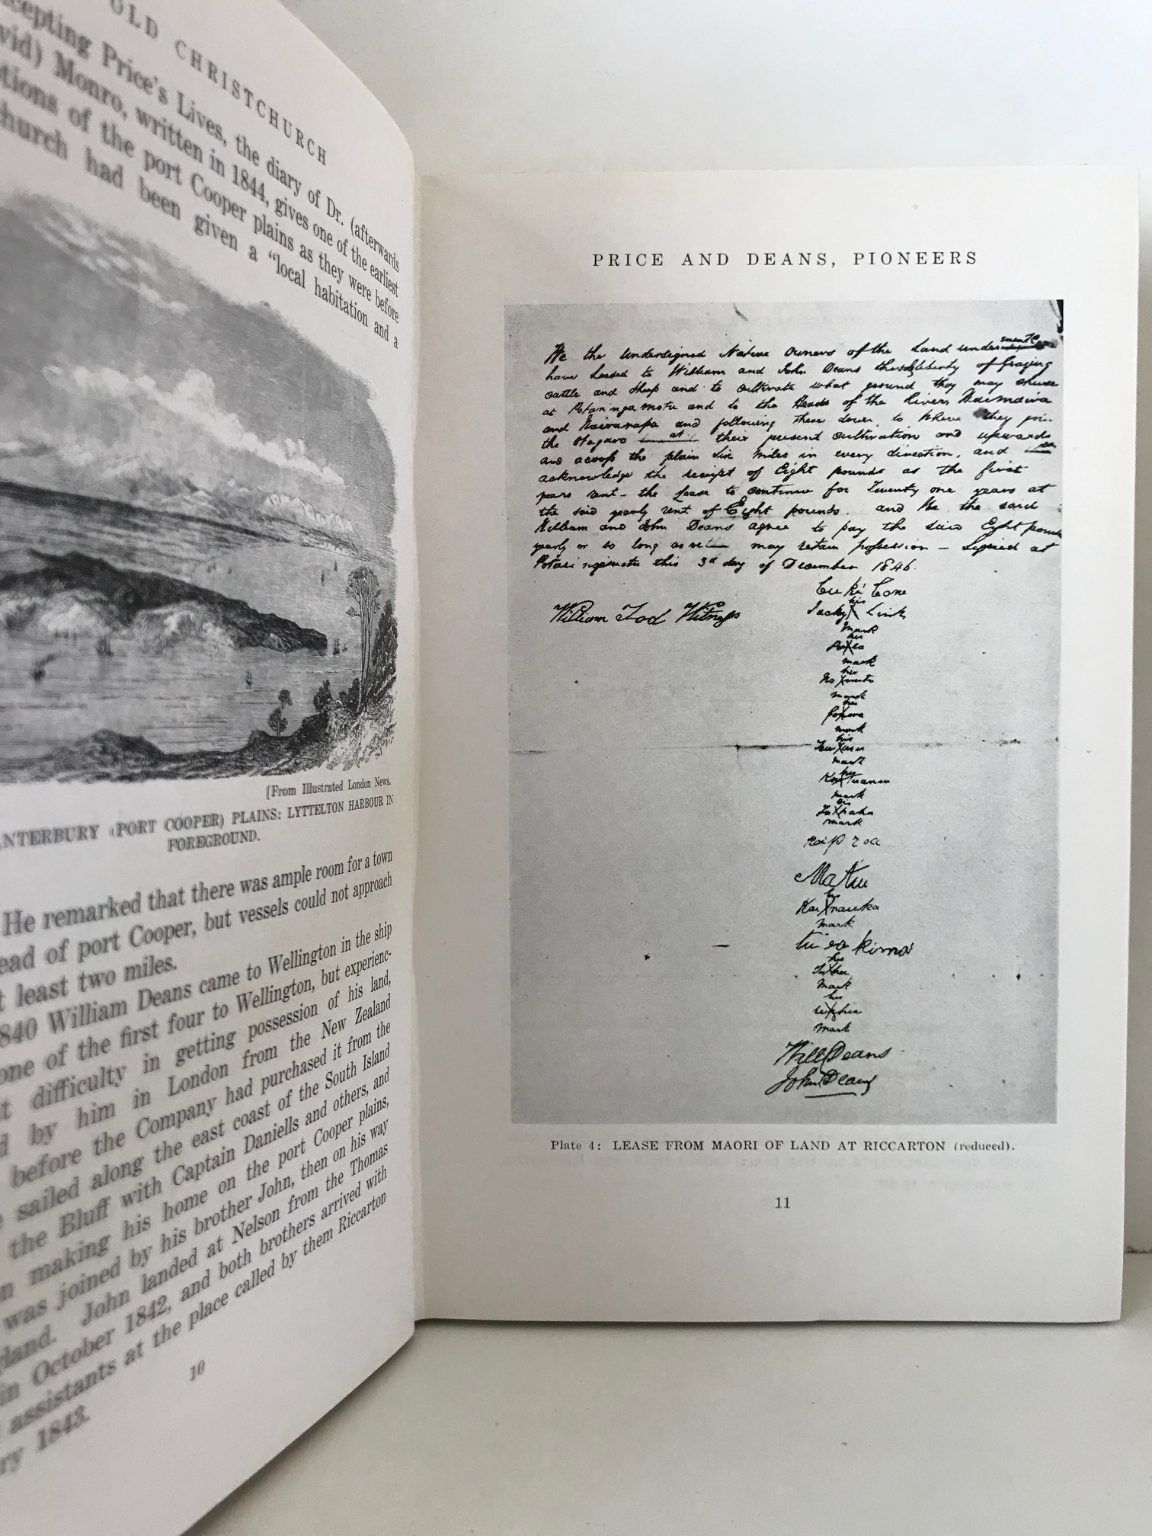 OLD CHRISTCHURCH
cepting Price's Lives, the diary of Dr. (afterwards
vid) Monro, written in 1844, gives one of the earliest
tions of the port Cooper plains as they were before
hurch had been given a "local habitation and a
[From Illustrated London News.
NTERBURY (PORT COOPER) PLAINS: LYTTELTON HARBOUR IN
FOREGROUND.
He remarked that there was ample room for a town
ead of port Cooper, but vessels could not approach
t least two miles.
840 William Deans came to Wellington in the ship
one of the first four to Wellington, but experienc-
t difficulty in getting possession of his land,
d by him in London from the New Zealand
before the Company had purchased it from the
sailed along the east coast of the South Island
the Bluff with Captain Daniells and others, and
n making his home on the port Cooper plains,
was joined by his brother John, then on his way
land. John landed at Nelson from the Thomas
in October 1842, and both brothers arrived with
assistants at the place called by them Riccarton
ry 1843.
10
PRICE AND DEANS, PIONEERS
We the undersigned Native Owners of the Land under
have leased to William and John Deans the liberty of Grazing
cattle and sheep and to cultivate what ground they may chuse
at and to the Heads of the Rivers
and and following these down to where they join
the at their present cultivation and upwards
and across the plain Six Miles in every direction, and
acknowledge the receipt of Eight pounds as the first
years rent - the Lease to continue for Twenty one years at
the said yearly rent of Eight pounds. and We the said
William and John Deans agree to pay the said Eight pounds
yearly or so long as we may retain possession - Signed at
this 3d day of December 1846.
William Tod Witness
his
Jacky X
mark
his
mark
his
mark
his
mark
his
mark
his
mark
his
mark
Matiu
his
mark
his
mark
his
mark
Will Deans
John Deans
Plate 4: LEASE FROM MAORI OF LAND AT RICCARTON (reduced).
11